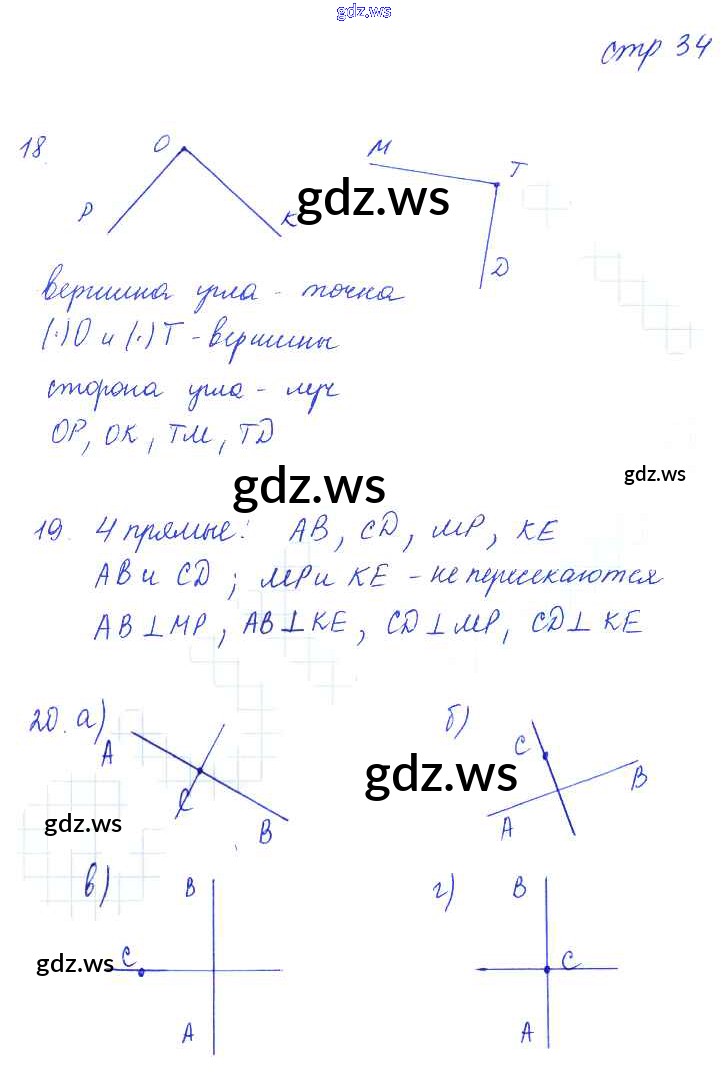 gdz.ws
стр 34
18.
O
P
K
M
T
D
gdz.ws
вершина угла - точка
(·)O и (·)T - вершины
сторона угла - луч
OP, OK, TM, TD
gdz.ws
gdz.ws
19. 4 прямые: AB, CD, MP, KE
AB и CD; MP и KE - не пересекаются
AB ⊥ MP, AB ⊥ KE, CD ⊥ MP, CD ⊥ KE
20. а)
A
C
B
б)
C
A
B
gdz.ws
gdz.ws
в)
B
C
A
gdz.ws
г)
B
C
A